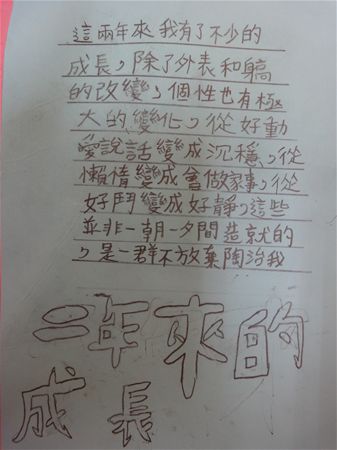 這兩年來我有了不少的
成長，除了外表和軀
的改變，個性也有極
大的變化，從好動
愛說話變成沉穩，從
懶惰變成會做家事，從
好鬥變成好靜，這些
並非一朝一夕間造就的
，是一群不放棄陶冶我
二年來的
成長